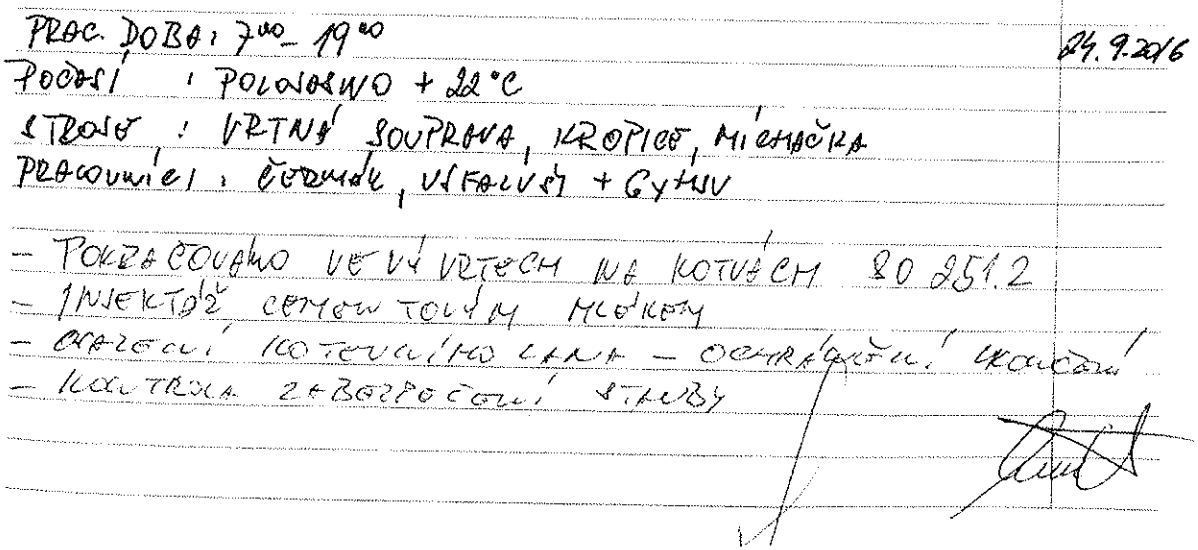 PRAC. DOBA: 7⁰⁰ - 19⁰⁰
24.9.2016
POČASÍ : POLOJASNO + 22°C
STROJE : VRTNÁ SOUPRAVA, KROPICE, MÍCHAČKA
PRACOVNÍCI : ČERMÁK, + 6x
- POKRAČOVÁNO VE VÝVRTECH NA KOTVÁCH SO 251.2
- INJEKTÁŽ CEMENTOVÝM MLÉKEM
- OSAZENÍ KOTEVNÍHO LANA - OCHRÁNĚNÍ
- KONTROLA ZABEZPEČENÍ STAVBY